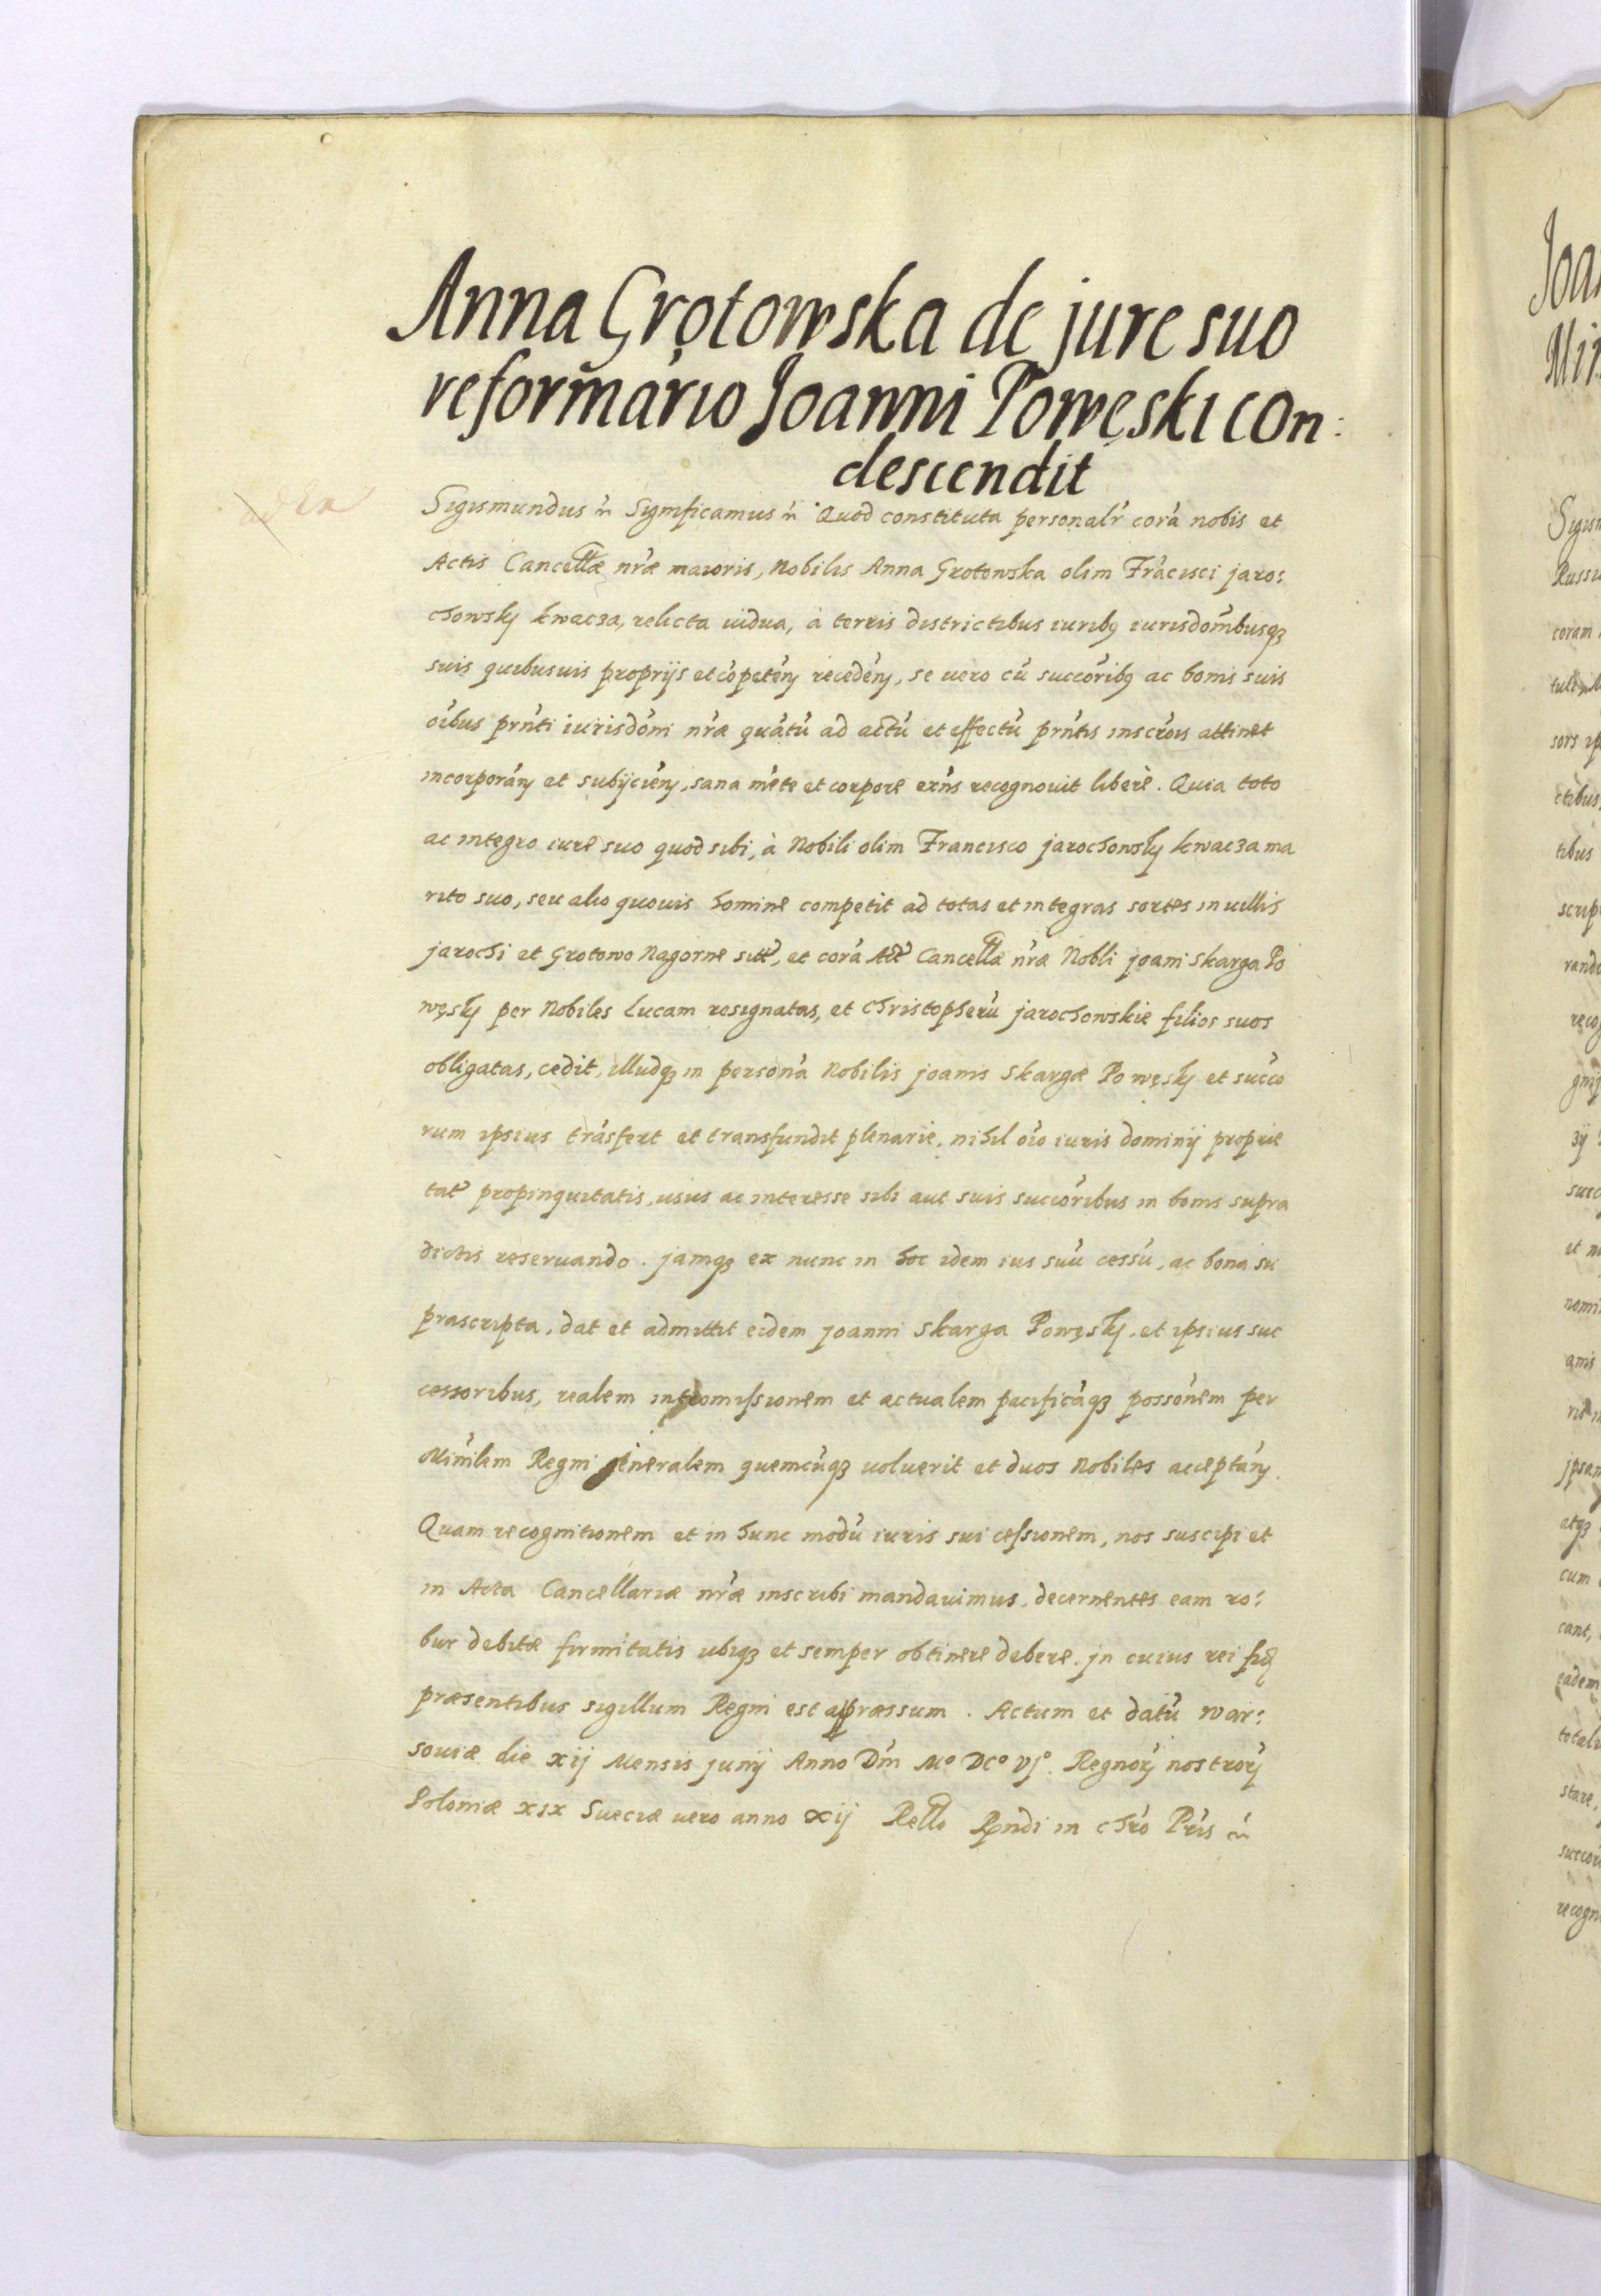 Anna Grotowska de jure suo
reformar̃io Joanni Powęski con:
descendit
Sigismundus Significamus Quod constituta personalr̃ corã nobis et
Actis Cancellæ nr̃æ maioris, Nobilis Anna Grotowska olim Frãcisci jaro:
chowskij kwacza, relicta vidua, à terris districtibus iuribq iurisdom̃busqz
suis quibusuis proprijs et cõpetẽn recedẽn, se uero cũ succor̃ibq ac bonis suis
oĩbus prñti iurisdõni nr̃æ quãtũ ad actũ et effectũ prñtis inscrõis attinet
incorporãn et subijciẽn, sana mẽte et corpore exñs recognouit liberè. Quia toto
ac integro iure suo quod sibi, à Nobili olim Francisco jarochowskij kwacza ma
rito suo, seu alio quouis homine competit ad totas et integras sortes in uillis
jarochi et Grotowo Nagorne sitt̃, et corã Act̃ Cancellæ nr̃æ Nobli joani Skarga Po
węskij per Nobiles Lucam resignatas, et Christopherũ jarochowskie filios suos
obligatas, cedit, illudqz in personã Nobilis joanis Skargæ Powęskij et succo
rum ipsius trãsfert et transfundit plenarie, nihil oĩo iuris dominij proprie
tat̃ propinquitatis, usius ac interesse sibi aut suis succor̃ibus in bonis supra
dictis reseruando. jamqz ex nunc in hoc idem ius suũ cessũ, ac bona su
prascripta, dat et admittit eidem joanni Skarga Powęskij, et ipsius suc
cessoribus, realem intromissionem et actualem pacificãqz possõnem per
Minĩlem Regni generalem quemcũqz uoluerit et duos Nobiles acceptãn.
Quam recognitionem et in hunc modũ iuris sui cessionem, nos suscipi et
in Acta Cancellariæ nr̃æ inscribi mandauimus, decernentes eam ro:
bur debitæ firmitatis ubiqz et semper obtinere debere. jn cuius rei fid
præsentibus sigillum Regni est appræssum. Actum et datũ war:
souiæ die xij Mensis junij Anno Dñi Mº DCº Vjº. Regnorũ nostrorũ
Poloniæ xix Sueciæ uero anno xij Rello Rñdi in chrõ Pr̃is